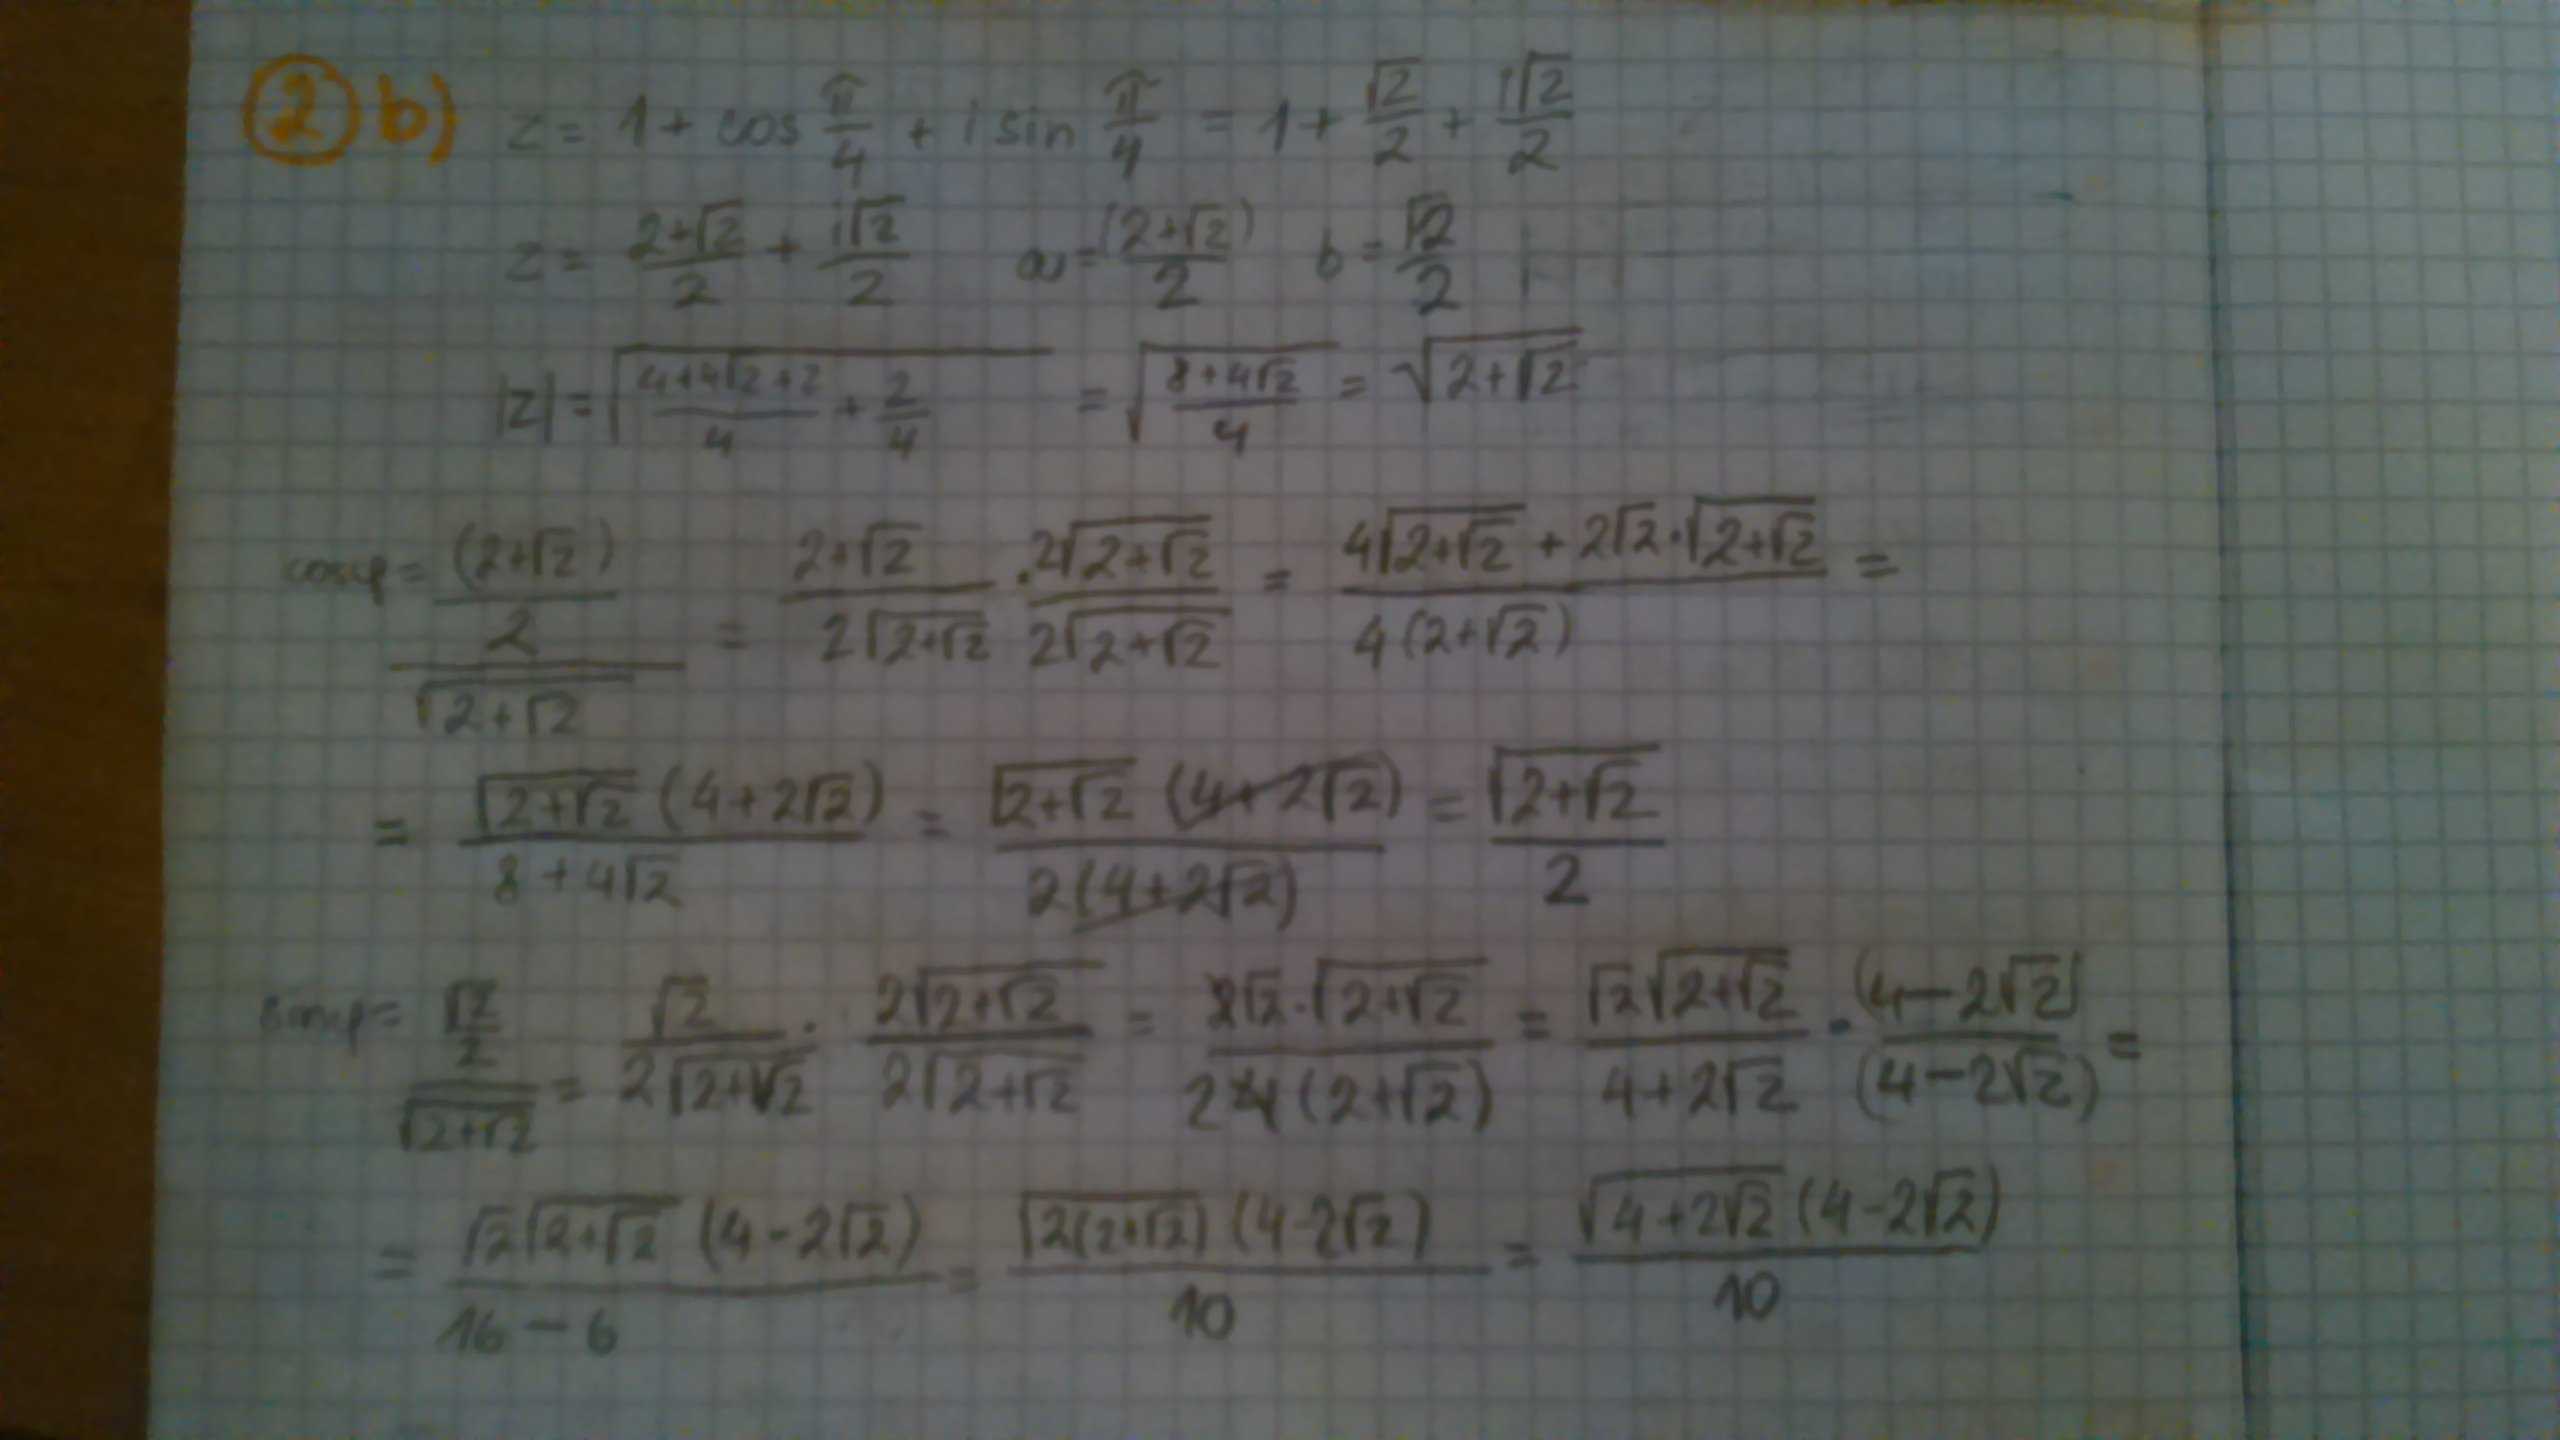 ② b) z = 1 + cos π/4 + i sin π/4 = 1 + √2/2 + i√2/2
z = (2+√2)/2 + i√2/2 a = (2+√2)/2 b = √2/2
|z| = √((4+4√2+2)/4 + 2/4) = √((8+4√2)/4) = √(2+√2)
cosφ = ((2+√2)/2)/√(2+√2) = (2+√2)/(2√(2+√2)) · (2√(2+√2))/(2√(2+√2)) = (4√(2+√2) + 2√2·√(2+√2))/(4(2+√2)) =
= (√(2+√2) (4+2√2))/(8+4√2) = (√(2+√2) (4+2√2))/(2(4+2√2)) = √(2+√2)/2
sinφ = (√2/2)/√(2+√2) = √2/(2√(2+√2)) · (2√(2+√2))/(2√(2+√2)) = (2√2·√(2+√2))/(2 4(2+√2)) = (√2√(2+√2))/(4+2√2) · (4-2√2)/(4-2√2) =
= (√2√(2+√2) (4-2√2))/(16-6) = (√(2(2+√2)) (4-2√2))/10 = (√(4+2√2) (4-2√2))/10